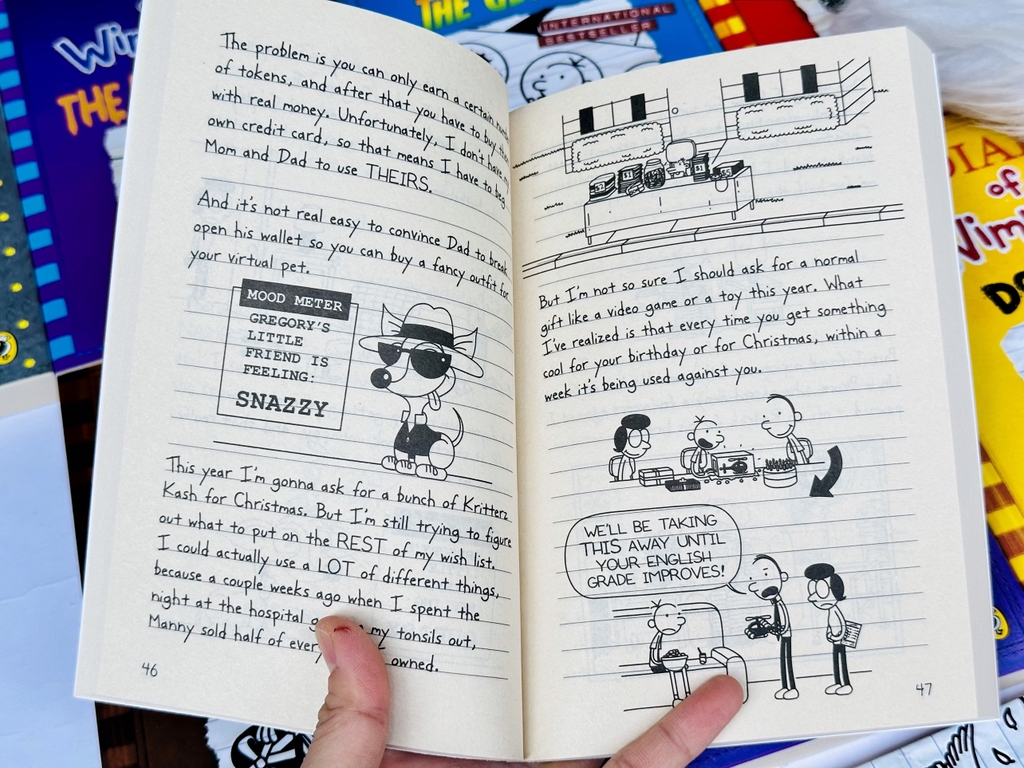 The problem is you can only earn a certain
of tokens, and after that you have to buy
with real money. Unfortunately, I don't have my
own credit card, so that means I have to beg
Mom and Dad to use THEIRS.
And it's not real easy to convince Dad to break
open his wallet so you can buy a fancy outfit for
your virtual pet.
MOOD METER
GREGORY'S
LITTLE
FRIEND IS
FEELING:
SNAZZY
This year I'm gonna ask for a bunch of Kritterz
Kash for Christmas. But I'm still trying to figure
out what to put on the REST of my wish list.
I could actually use a LOT of different things,
because a couple weeks ago when I spent the
night at the hospital my tonsils out,
Manny sold half of owned.
46
But I'm not so sure I should ask for a normal
gift like a video game or a toy this year. What
I've realized is that every time you get something
cool for your birthday or for Christmas, within a
week it's being used against you.
WE'LL BE TAKING
THIS AWAY UNTIL
YOUR ENGLISH
GRADE IMPROVES!
47
THE
INTERNATIONAL
BESTSELLER
THE
of